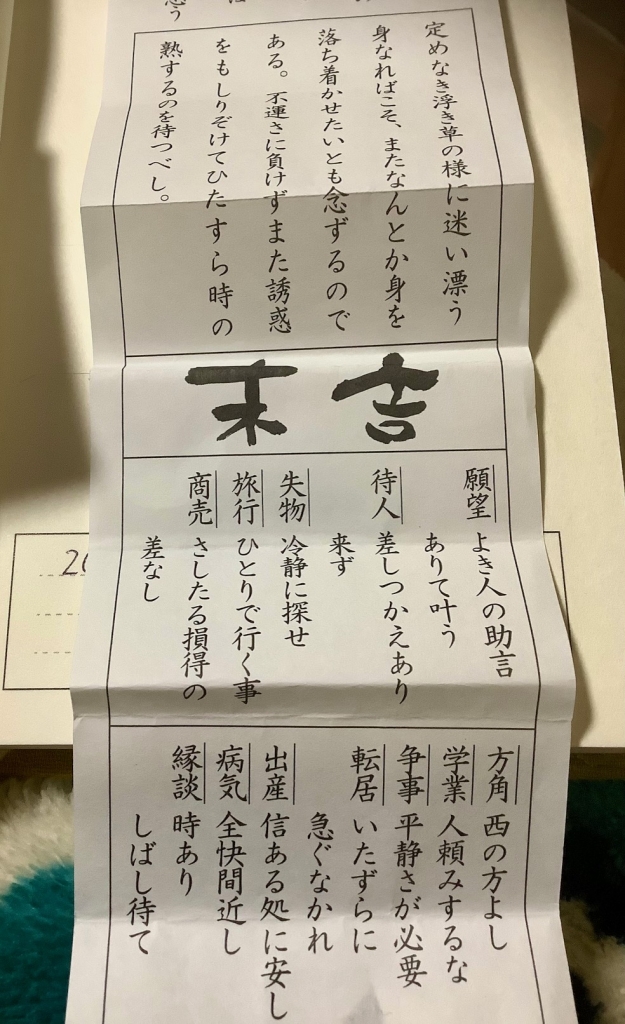 定めなき浮き草の様に迷い漂う
身なればこそ、またなんとか身を
落ち着かせたいとも念ずるので
ある。不運さに負けずまた誘惑
をもしりぞけてひたすら時の
熟するのを待つべし。
末吉
願望 よき人の助言
ありて叶う
待人 差しつかえあり
来ず
失物 冷静に探せ
旅行 ひとりで行く事
商売 さしたる損得の
差なし
方角 西の方よし
学業 人頼みするな
争事 平静さが必要
転居 いたずらに
急ぐなかれ
出産 信ある処に安し
病気 全快間近し
縁談 時あり
しばし待て